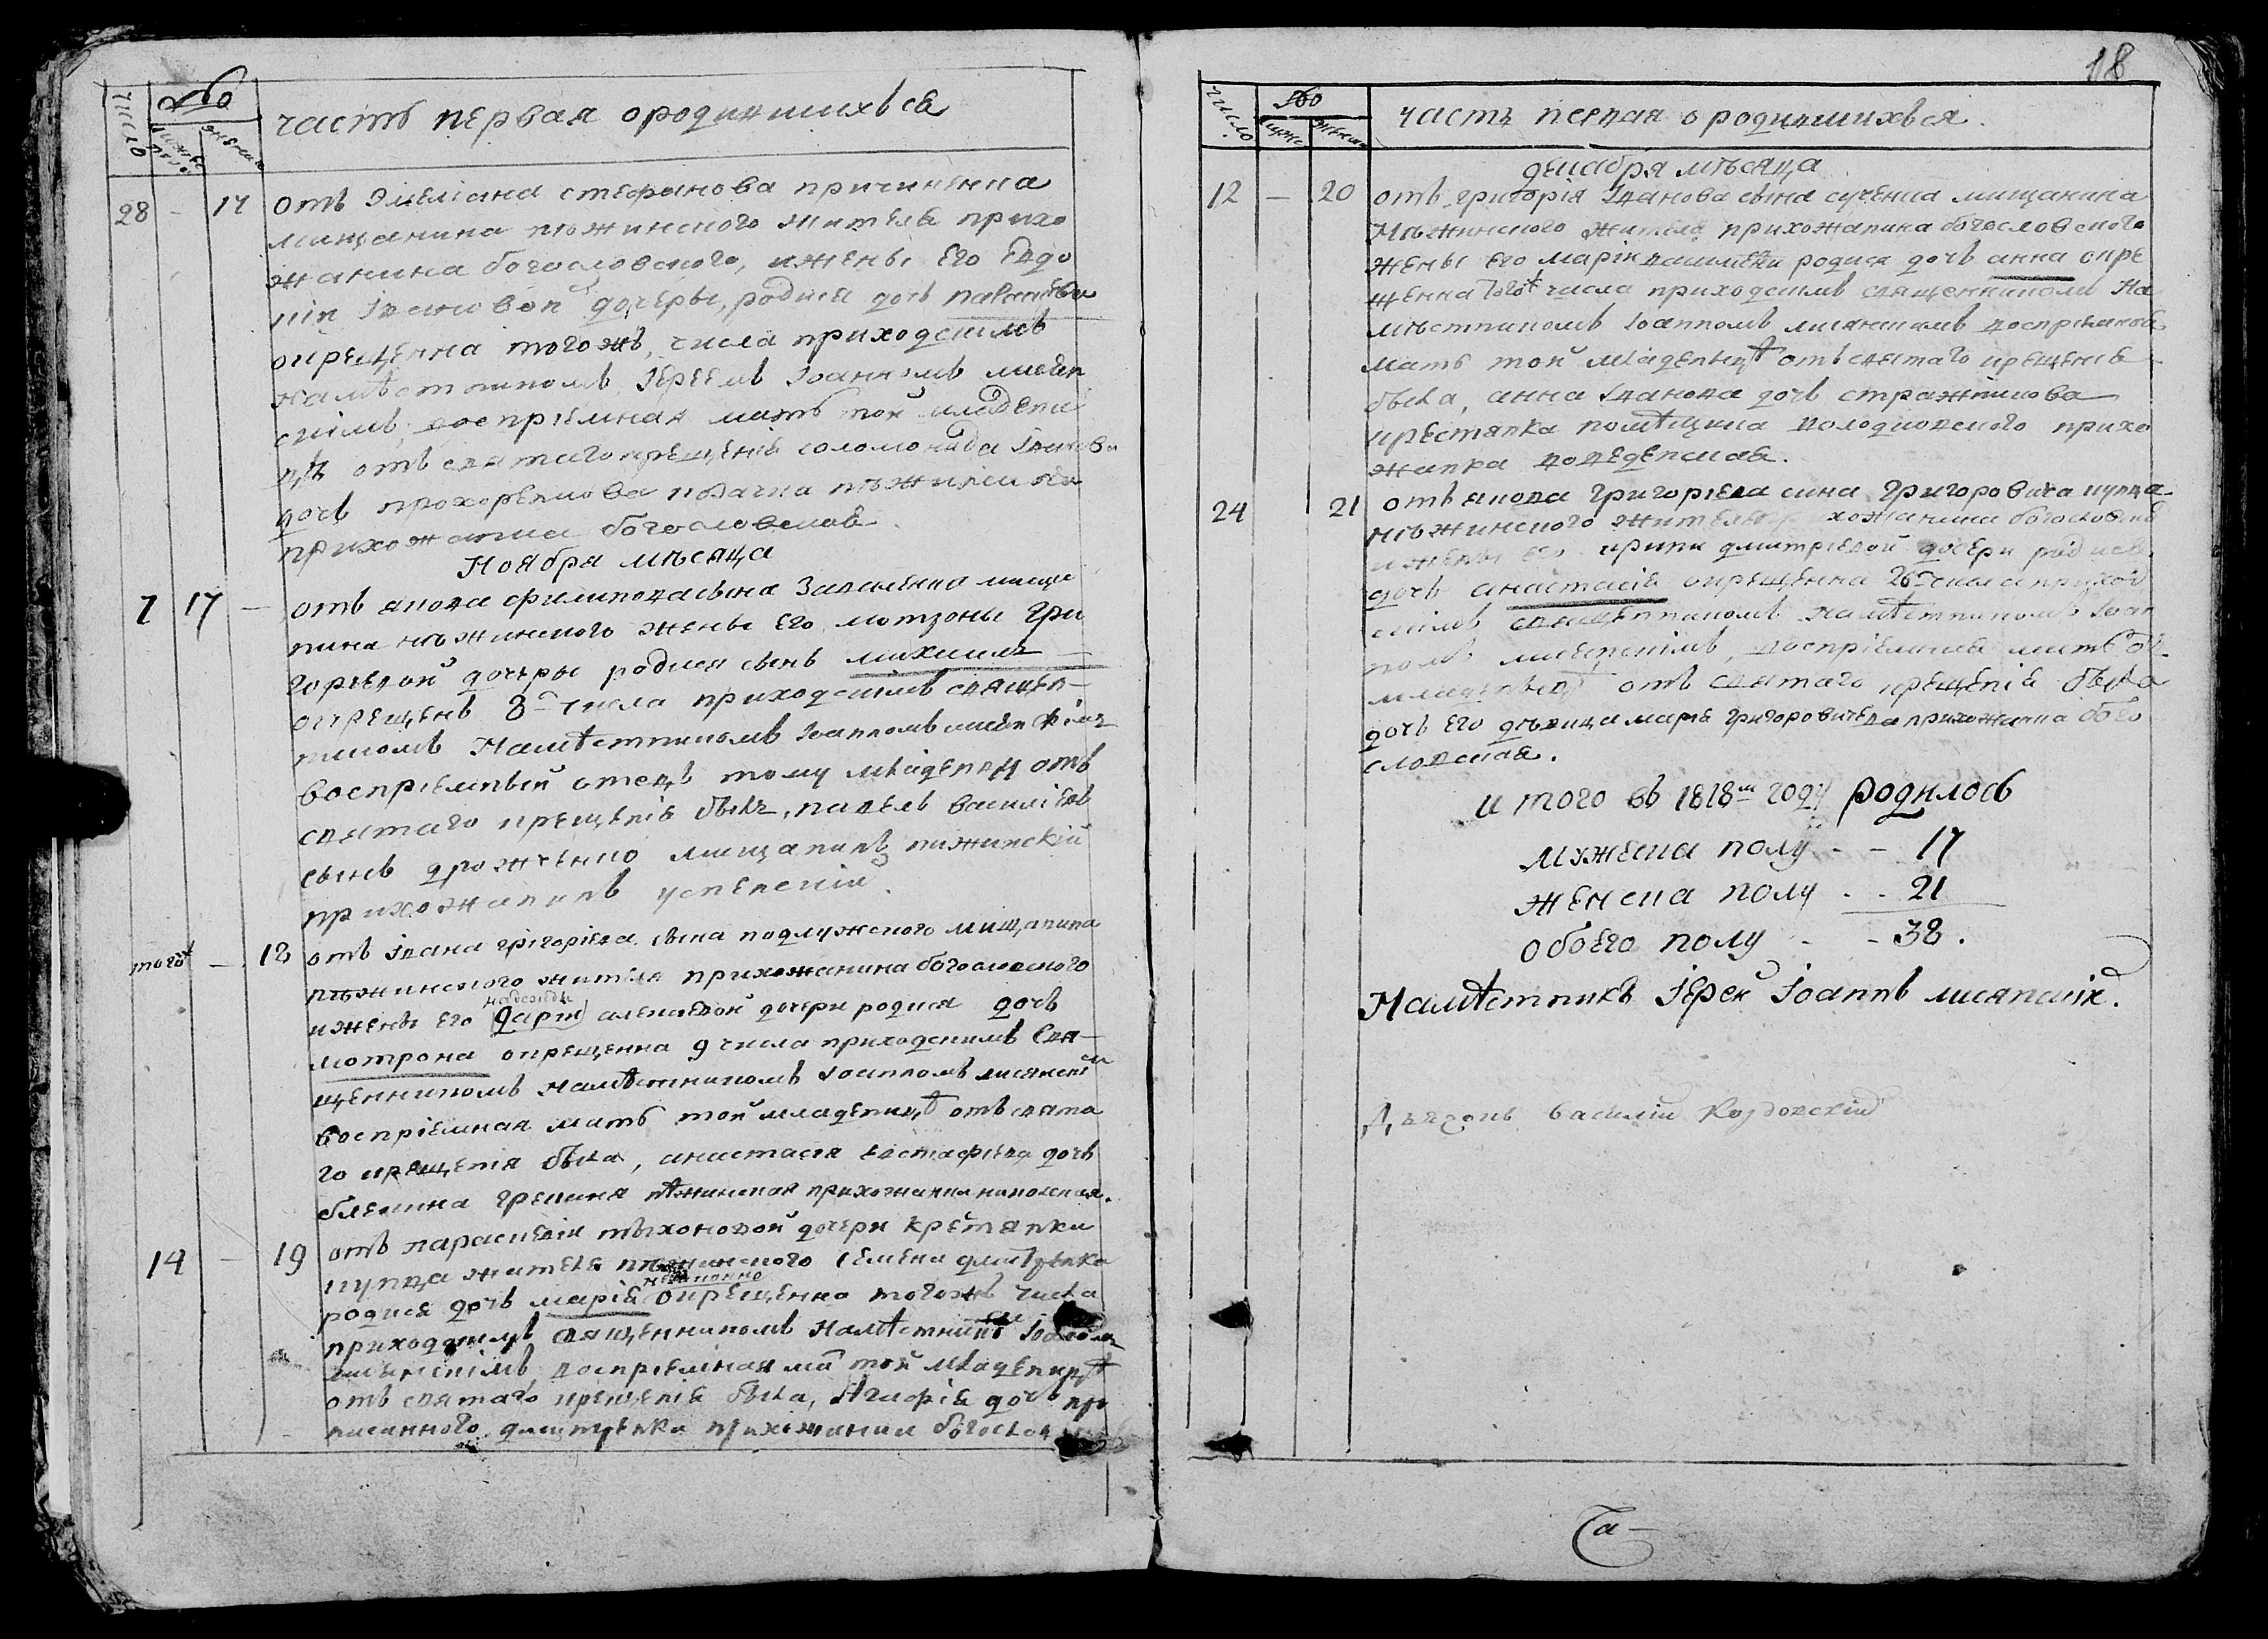 число
№
мужеска
женска
часть первая ородившихься
28 - 17 отъ Эмелиана стефанова причиненка
мищанина нѣжинского жителя прихо
жанина богословского, ижены его Евдо
кіи Івановой дочеры, родися дочь параскевия
окрещенна тогожъ числа приходскимъ
намѣстникомъ Іереемъ Іоанномъ лисян
скимъ, воспріемная мать той младени
цѣ отъ святаго крещенія соломонида Іванова
дочь прохоренкова козачка нѣжинская
прихожанка богословская.
Ноября мѣсяца
7 17 - отъ якова филипова сына Заваленка мища
нина нѣжинского жены Его мотроны Гри
горіевой дочеры родися сынъ михаилъ
окрещенъ 8 числа приходскимъ священ-
никомъ Намѣстникомъ Іоанномъ лисянскімъ
воспріемный отецъ тому младенцу отъ
святаго крещенія былъ, павелъ василіевъ
сынъ дрожченко мищанинъ нѣжинскій
прихожанинъ успенскій.
тогож - 18 отъ Івана григоріева сына подлужского мищанина
нѣжинского жителя прихожанина богословского
надежды
ижены его дарии алексіевой дочери родися дочь
мотрона окрещенна 9 числа приходскимъ Свя-
щенникомъ Намѣстникомъ Іоанномъ лисянскім
воспріемная мать той младеницѣ отъ свята
го крещенія была, анастасія евстафіева дочь
грекиня нѣжинская прихожанка
14 - 19 отъ параскевіи тихоновой дочери крестянки
купца жителя нѣжинского семена дмитренка
незаконно
родися дочь марія окрещенна тогожъ числа
приходскимъ священникомъ Намѣстникомъ Іоанномъ
лисянскімъ, воспріемная ма той младеницѣ
отъ святаго крещенія была, Агафія дочь
писанного дмитренка прихожанка богослов
18
число
№
муже
женск
часть первая ородившихься.
декабря мѣсяца
12 - 20 отъ григорія Іванова сына сученка мищанина
Нѣжинского жителя прихожанина богословского
жены его маріи родися дочь анна окре
щенна тогож числа приходскимъ священникомъ На
мѣстникомъ Іоанномъ лисянскимъ воспріемная
мать той младеницѣ отъ святаго крещенія
была, анна Іванова дочь стражникова
крестянка помѣщика володковского прихо
жанка воведенская.
24 21 отъ якова григоріева сина григоровича купца
нѣжинского жителя прихожанина богословск
ижены его ирины дмитріевой дочери родися
дочь анастасія окрещенна 26 числа приход
скимъ священникомъ Намѣстникомъ Іоан
номъ лисянскімъ, воспріемная мать
младеницѣ отъ святаго крещенія была
дочь его дѣвица марія григоровичева прихожанка бого
словская.
итого въ 1818м году родилось
мужеска полу - - 17
женска полу - - 21
обоего полу - - 38.
Намѣстникъ Іерей Іоаннъ лисянскій.
Дяконъ василій Козловскій
Ча-